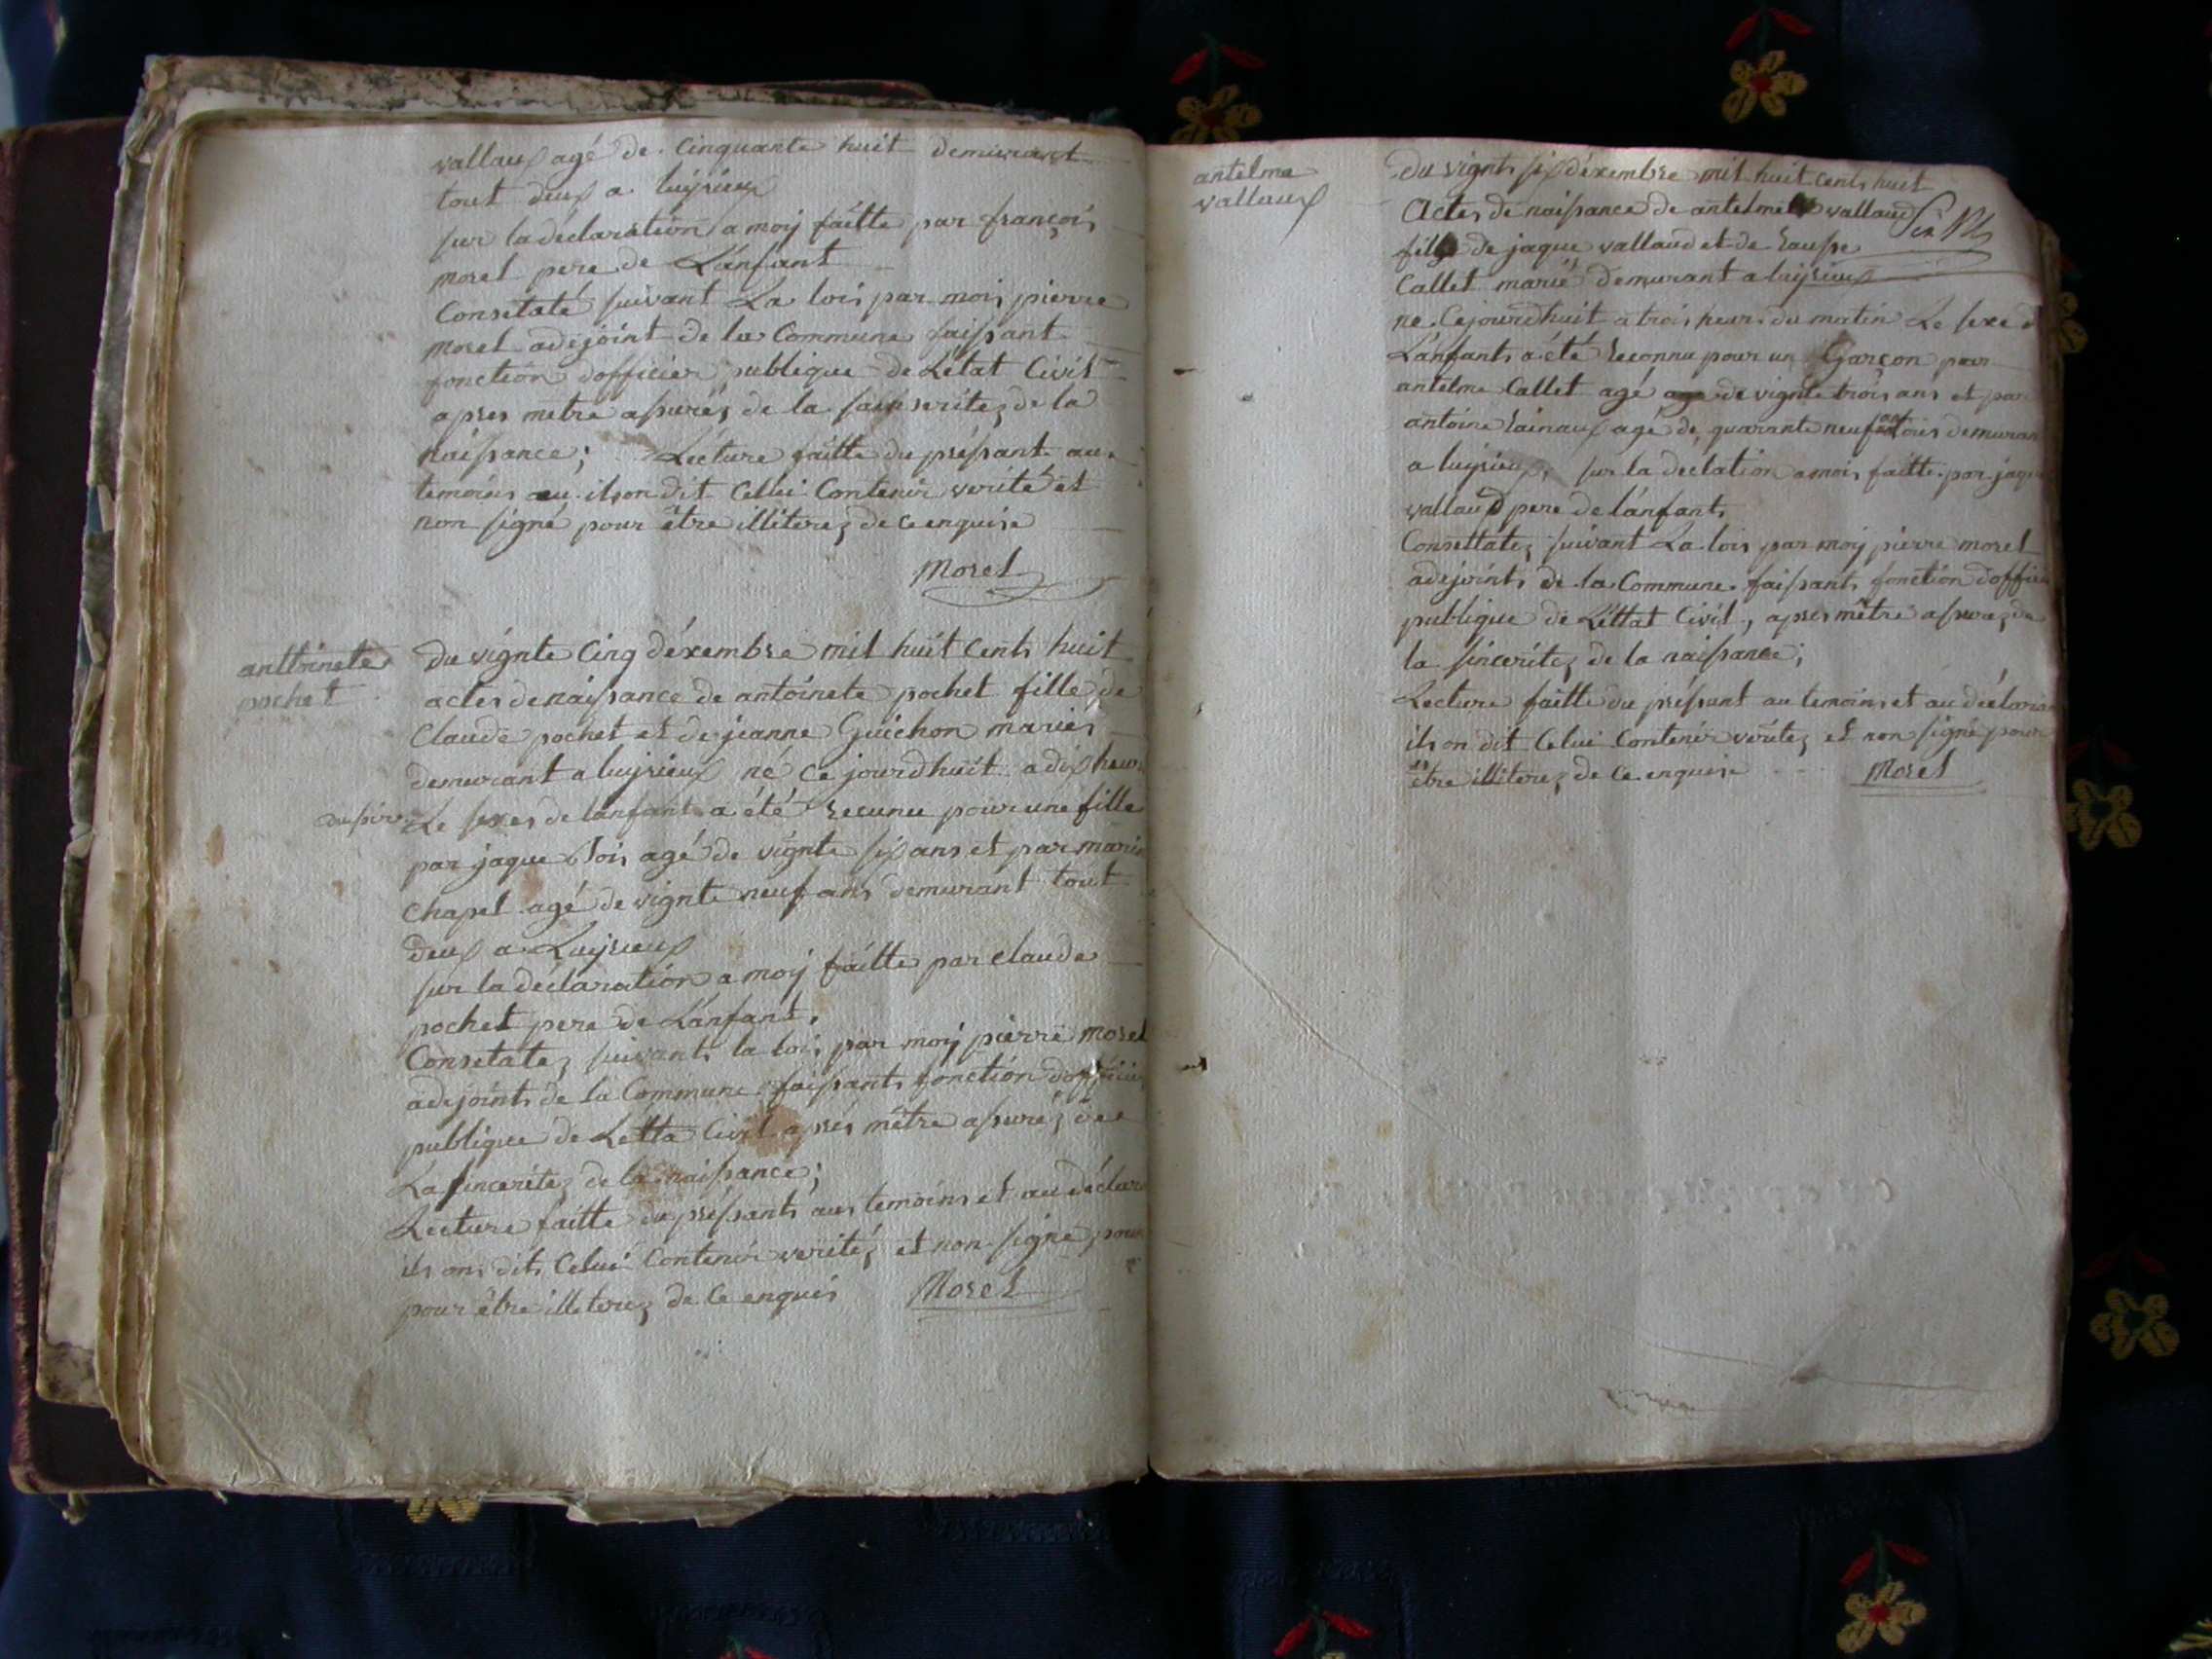 vallaux agé de Cinquante huit demurant
tout deux a luÿrieux
sur la déclaration a moÿ faitte par françois
morel pere de L'anfant
Consetaté suivant La lois par mois pierre
morel adejoint de la Commune faissant
fonction dofficier publique de Létat Civil
apres metre assurez de la de la
naissance; Lecture faitte du préssant au
temoins au ilson dit Celui Contenir verité et
non signé pour être illiterez de ce enquise
Morel
anttoinete
pochet
Du vignte Cinq déxembre mil huit Cents huit
actes de naissance de antoinete pochet fille de
Claude pochet et de jeanne Guichon mariés
demurant a luijrieux né ce jourdhuit a dix heur
du soire Le sexes de lanfant a été recunu pour une fille
par jaque Lois agé de vignte six ans et par
Chapel agé de vignte neuf ans demurant tout
deux a Luijrieux
sur la déclaration a moÿ faitte par claude
pochet pere de L'anfant.
Consetatez suivants la lois par moÿ pierre morel
adejoints de la Commune faissants fonction dofficier
publique de Letta Civil aprés mêtre assuréz de
La sinceritez de la naissance;
Lecture faitte du préssants aus temoins et au déclara
ils ons dits Celui Contenir veritéz et non signé pour
pour être illeterez de Ce enquis Morel
antelme
vallaux
Du vignts six déxembre mil huit cents huit
Actes de naissance de antelme vallaud
fils de jaque vallaud et de
Callet marié demurant a luijrieux
né Cejourdhuit a trois heur du matin Le sexe d
L'anfants a été reconnu pour un Garçon par
antelme Callet agé de vignte trois ans et par
antoine rainaux agé de quarante neuf ans demuran
a luijrieux, sur la declation a mois faitte par jaque
vallaud pere de l'anfant,
Consettatez suivant La lois par moÿ pierre morel
adejoints de la Commune faissants fonction dofficie
publique de L'ettat Civil, apres mêtre assurez de
la sinceritez de la naissance;
Lecture faitte du préssant au temoins et au déclara
ils on dit Celui Contenir véritez et non signé pour
être illiterez de Ce enquise Morel